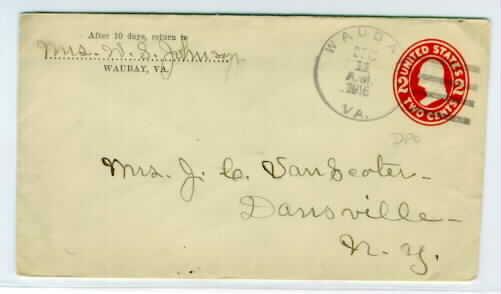 After 10 days, return to
Mrs. W. S. Johnson
WAUBAY, VA.
WAUBA
DEC
11
A.M.
1916
VA.
UNITED STATES
2 2
TWO CENTS
DPO
Mrs. J. C. VanScoter
Dansville
N. Y.